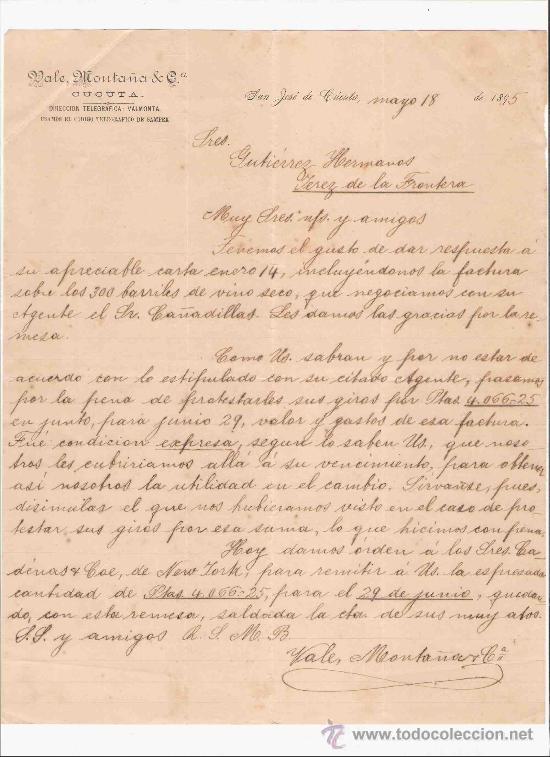 Vale, Montaña & Cª
CUCUTA.
DIRECCION TELEGRÁFICA: VALMONTA.
USAMOS EL CODIGO TELEGRAFICO DE SAMPER
San José de Cúcuta, mayo 18 de 1895
Sres.
Gutiérrez Hermanos
Jerez de la Frontera
Muy Sres. nfs. y amigos
Tenemos el gusto de dar respuesta á
su apreciable carta enero 14, incluyéndonos la factura
sobre los 300 barriles de vino seco, que negociamos con su
Agente el Sr. Cañadillas. Les damos las gracias por la re-
mesa.
Como Us. sabran y por no estar de
acuerdo con lo estipulado con su citado Agente, pasamos
por la pena de protestarles sus giros por Ptas. 4.066-25
en junto, para junio 29, valor y gastos de esa factura.
Fué condicion expresa, segun lo saben Us, que noso-
tros les cubririamos allá á su vencimiento, para obtener
asi nosotros la utilidad en el cambio. Sirvanse, pues,
disimular el que nos hubieramos visto en el caso de pro-
testar sus giros por esa suma, lo que hicimos con pena.
Hoy damos órden á los Sres. Ca-
denas & Coe, de New York, para remitir á Us. la espresada
cantidad de Ptas 4.066-25, para el 29 de junio, quedan-
do, con esta remesa, saldada la cta. de sus muy atos.
S.S. y amigos Q. S. M. B
Vale, Montaña & Cª
todocoleccion
www.todocoleccion.net